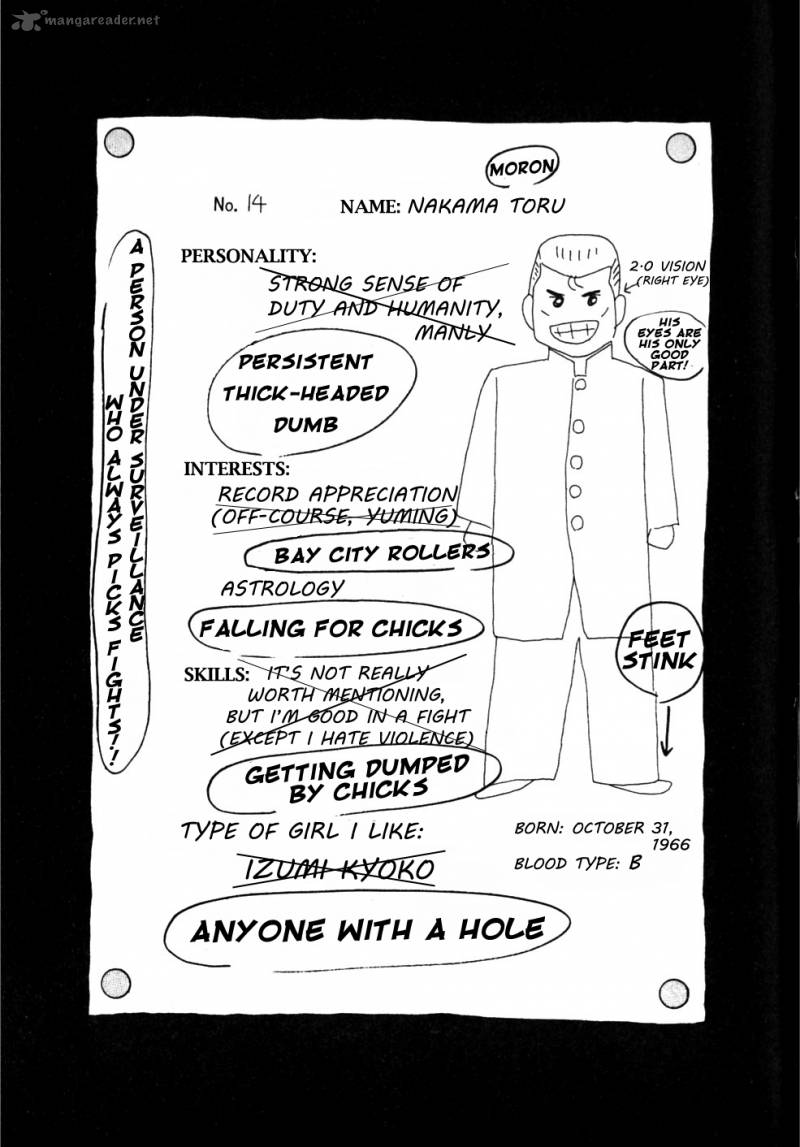 mangareader.net
MORON
No. 14
NAME: NAKAMA TORU
A PERSON UNDER SURVEILLANCE
WHO ALWAYS PICKS FIGHTS!!
PERSONALITY:
STRONG SENSE OF
DUTY AND HUMANITY,
MANLY
PERSISTENT
THICK-HEADED
DUMB
2.0 VISION
(RIGHT EYE)
HIS
EYES ARE
HIS ONLY
GOOD
PART!
INTERESTS:
RECORD APPRECIATION
(OFF-COURSE, YUMING)
BAY CITY ROLLERS
ASTROLOGY
FALLING FOR CHICKS
FEET
STINK
SKILLS: IT'S NOT REALLY
WORTH MENTIONING,
BUT I'M GOOD IN A FIGHT
(EXCEPT I HATE VIOLENCE)
GETTING DUMPED
BY CHICKS
TYPE OF GIRL I LIKE:
IZUMI KYOKO
ANYONE WITH A HOLE
BORN: OCTOBER 31,
1966
BLOOD TYPE: B